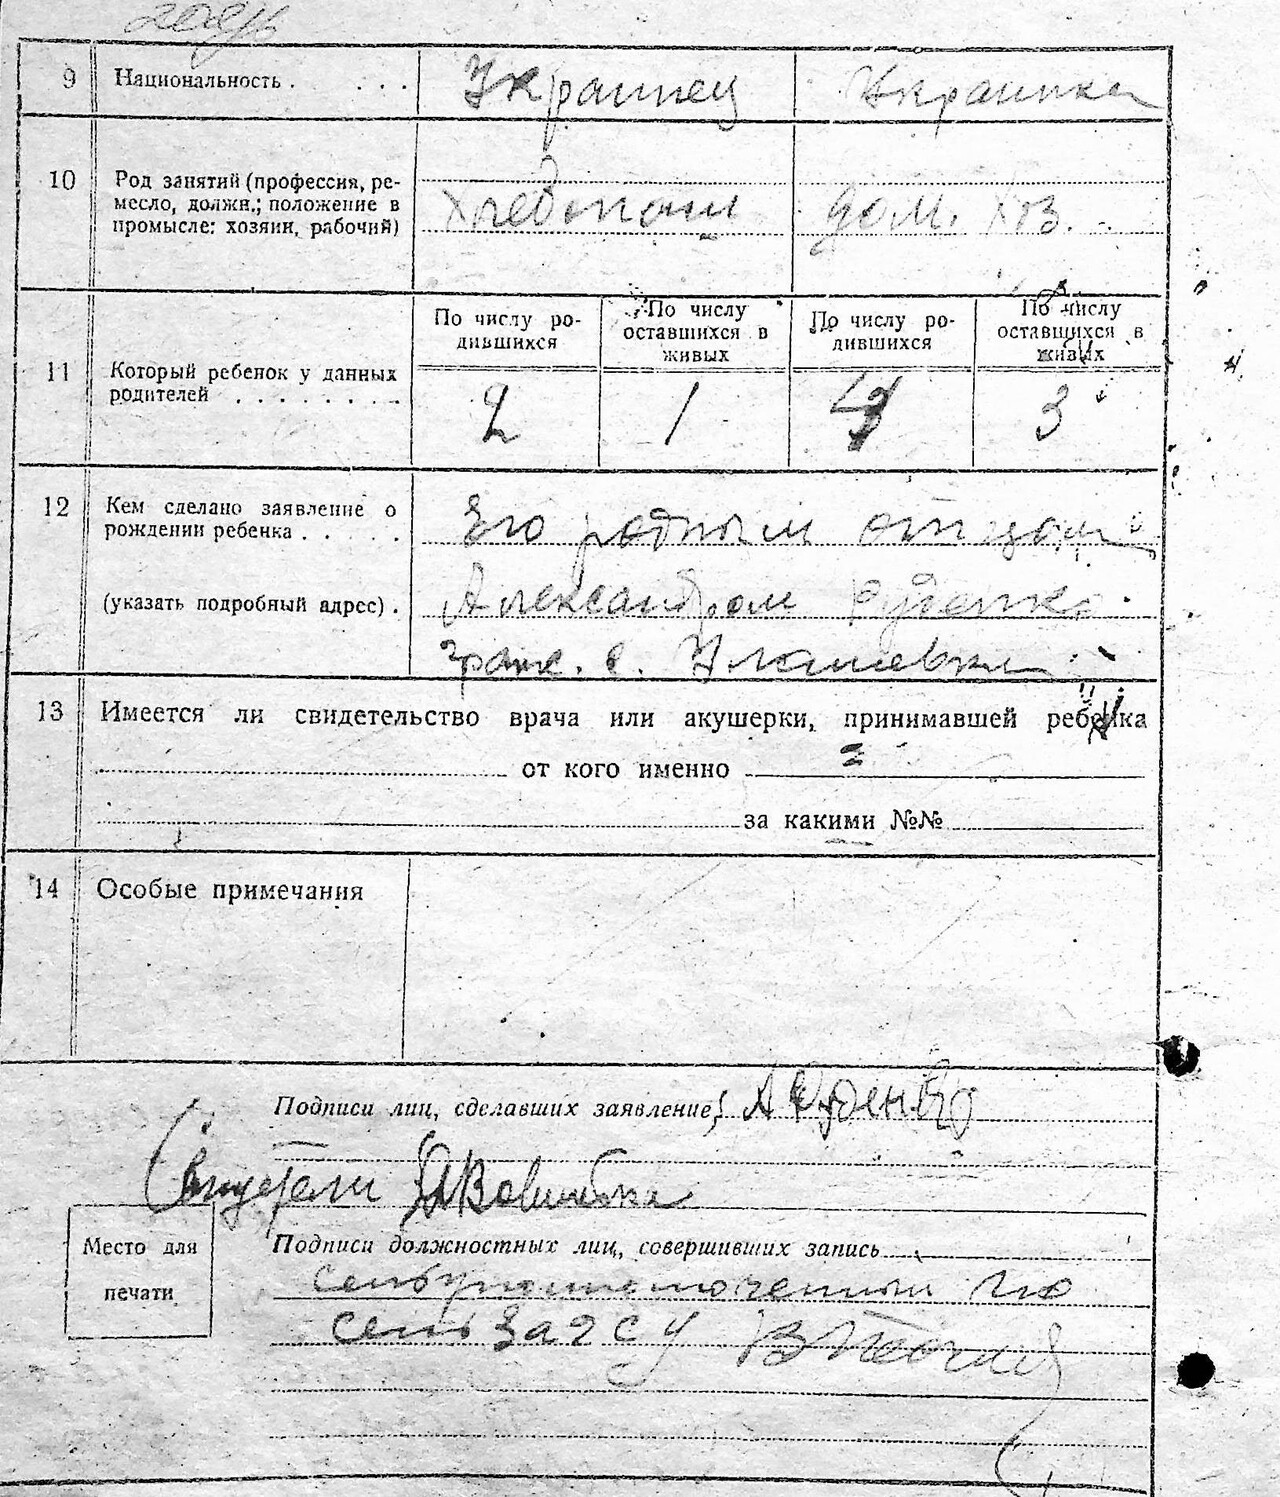 9 Национальность . . . . Украинец Украинка
10 Род занятий (профессия, ре-
месло, должн.; положение в
промысле: хозяин, рабочий)
хлебопаш дом. хоз.
По числу ро-
дившихся
По числу
оставшихся в
живых
По числу ро-
дившихся
По числу
оставшихся в
живых
11 Который ребенок у данных
родителей . . . . . . . .
2 1 3
12 Кем сделано заявление о
рождении ребенка . . . . .
Его родным отцом
(указать подробный адрес) . Александром Руденко
граж. с.
13 Имеется ли свидетельство врача или акушерки, принимавшей ребенка
от кого именно
за какими №№
14 Особые примечания
Подписи лиц, сделавших заявление А Руденко
Свидетели
Место для
печати
Подписи должностных лиц, совершивших запись
сельуполномоченный по
сель Загсу